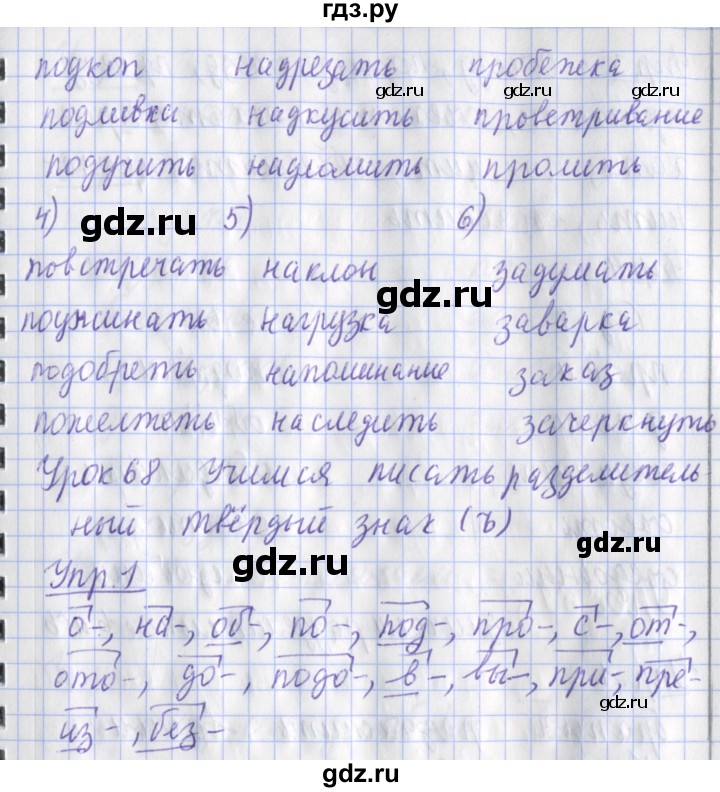 гдз.ру
подкоп надрезать пробежка
gdz.ru gdz.ru gdz.ru
подливка надкусить проветривание
подучить надломить пролить
4) 5) 6)
gdz.ru
повстречать наклон задумать
gdz.ru
поужинать нагрузка заварка
подобреть напоминание заказ
пожелтеть наследить зачеркнуть
Урок 68 Учимся писать разделитель-
ный твёрдый знак (ъ)
gdz.ru
gdz.ru
Упр.1
о-, на-, об-, по-, под-, про-, с-, от-,
ото-, до-, подо-, в-, вы-, при-, пре-
gdz.ru
из-, без-
gdz.ru